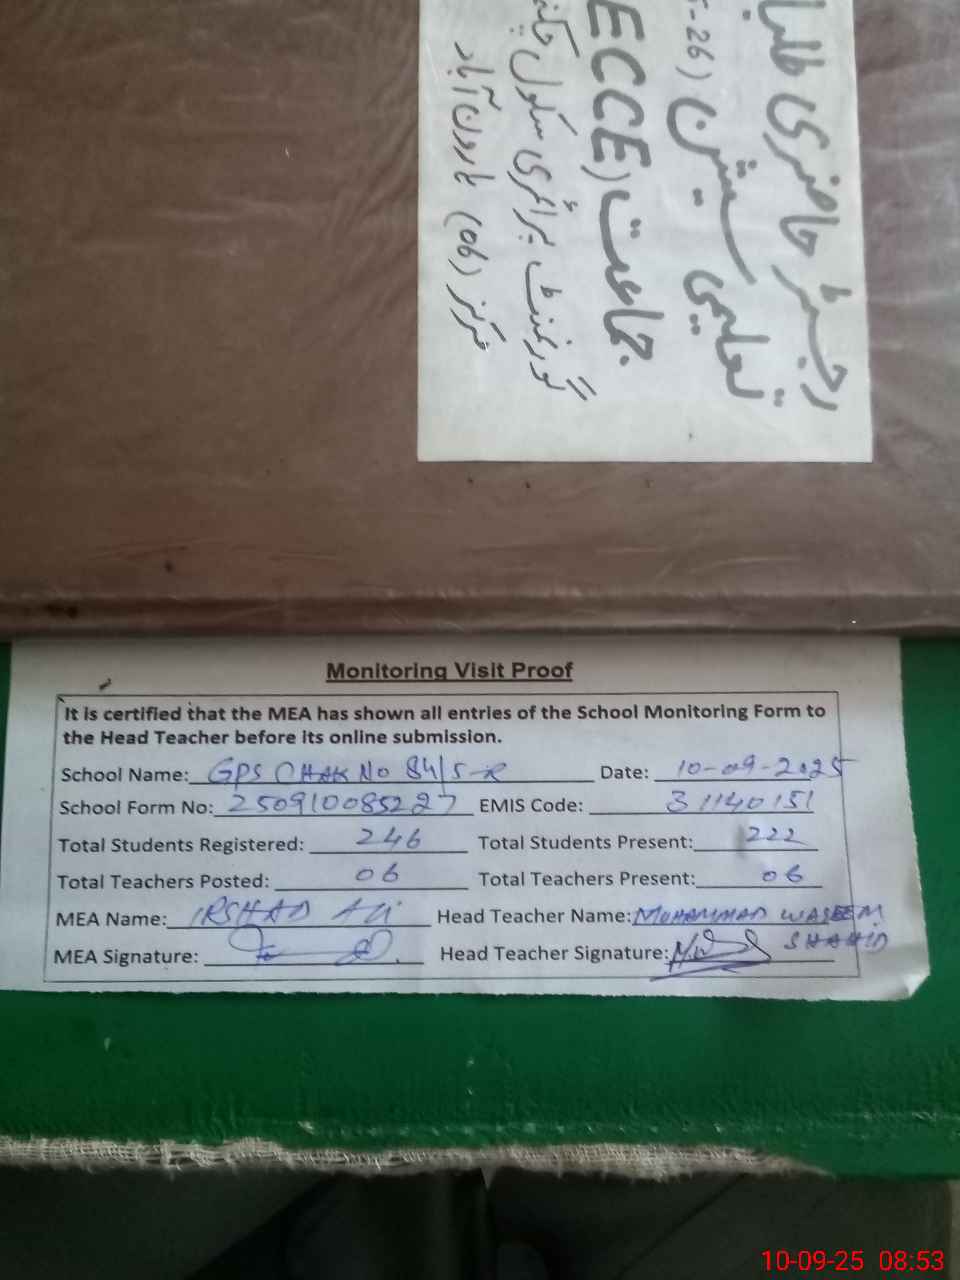 رجسٹر حاضری طلبا
تعلیمی سیشن (5-26
جماعت (ECCE
گورنمنٹ پرائمری سکول چک
مرکز (06) ہارون آباد
Monitoring Visit Proof
It is certified that the MEA has shown all entries of the School Monitoring Form to
the Head Teacher before its online submission.
School Name: GPS CHAK No 84/5-R Date: 10-09-2025
School Form No: 250910085227 EMIS Code: 31140151
Total Students Registered: 246 Total Students Present: 222
Total Teachers Posted: 06 Total Teachers Present: 06
MEA Name: IRSHAD Ali Head Teacher Name: MOHAMMAD WASEEM
SHAHID
MEA Signature: Head Teacher Signature:
10-09-25 08:53